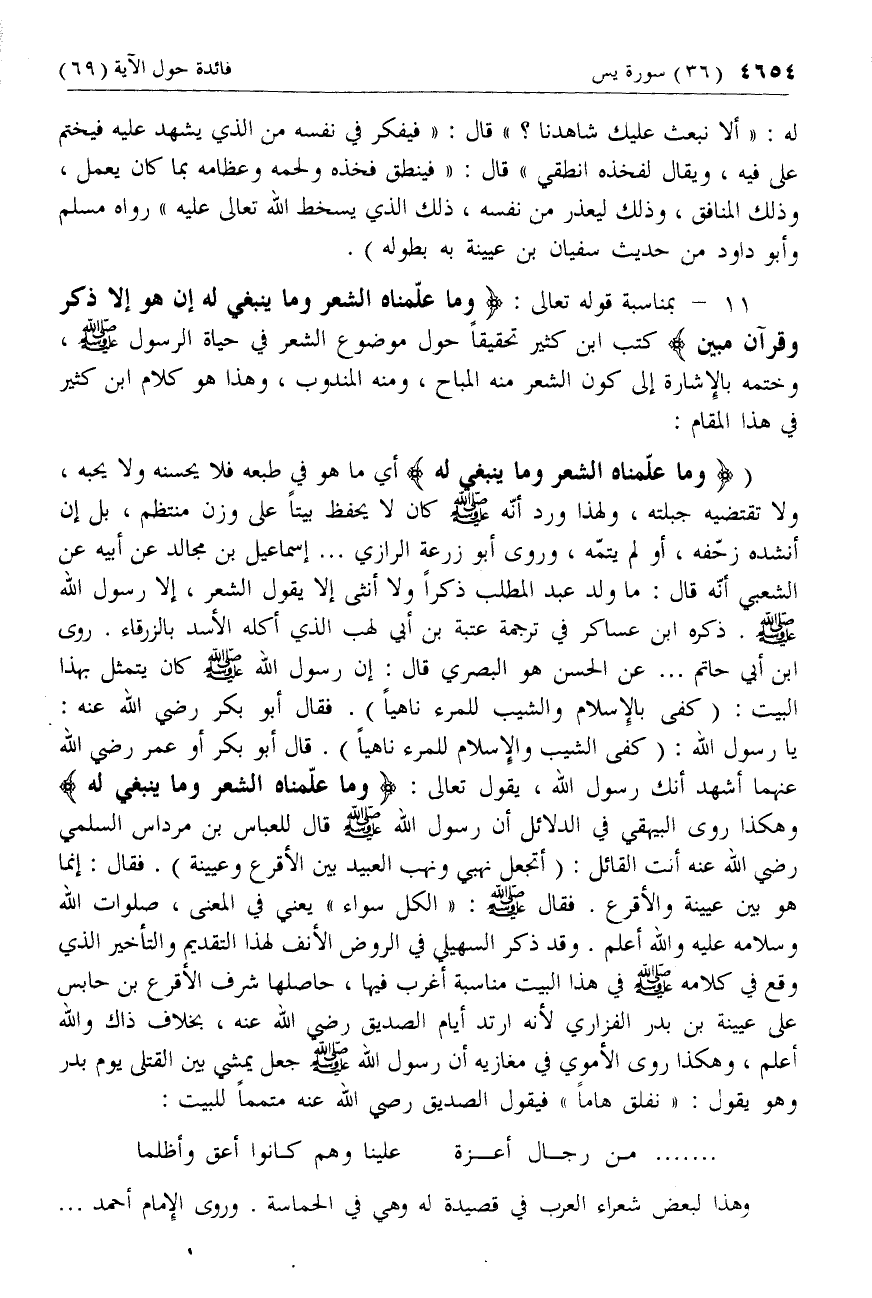 ٤٦٥٤ (٣٦) سورة يس فائدة حول الآية (٦٩)
له : « ألا نبعث عليك شاهدنا ؟ » قال : « فيفكر في نفسه من الذي يشهد عليه فيختم
على فيه ، ويقال لفخذه انطقي » قال : « فينطق فخذه ولحمه وعظامه بما كان يعمل ،
وذلك المنافق ، وذلك ليعذر من نفسه ، ذلك الذي يسخط الله تعالى عليه » رواه مسلم
وأبو داود من حديث سفيان بن عيينة به بطوله ) .
١١ – بمناسبة قوله تعالى : ﴿ وما علّمناه الشعر وما ينبغي له إن هو إلا ذكر
وقرآن مبين ﴾ كتب ابن كثير تحقيقاً حول موضوع الشعر في حياة الرسول ﷺ ،
وختمه بالإشارة إلى كون الشعر منه المباح ، ومنه المندوب ، وهذا هو كلام ابن كثير
في هذا المقام :
( ﴿ وما علّمناه الشعر وما ينبغي له ﴾ أي ما هو في طبعه فلا يحسنه ولا يحبه ،
ولا تقتضيه جبلته ، ولهذا ورد أنّه ﷺ كان لا يحفظ بيتاً على وزن منتظم ، بل إن
أنشده زحّفه ، أو لم يتمّه ، وروى أبو زرعة الرازي ... إسماعيل بن مجالد عن أبيه عن
الشعبي أنّه قال : ما ولد عبد المطلب ذكراً ولا أنثى إلا يقول الشعر ، إلا رسول الله
ﷺ . ذكره ابن عساكر في ترجمة عتبة بن أبي لهب الذي أكله الأسد بالزرقاء . روى
ابن أبي حاتم ... عن الحسن هو البصري قال : إن رسول الله ﷺ كان يتمثل بهذا
البيت : ( كفى بالإسلام والشيب للمرء ناهياً ) . فقال أبو بكر رضي الله عنه :
يا رسول الله : ( كفى الشيب والإسلام للمرء ناهياً ) . قال أبو بكر أو عمر رضي الله
عنهما أشهد أنك رسول الله ، يقول تعالى : ﴿ وما علّمناه الشعر وما ينبغي له ﴾
وهكذا روى البيهقي في الدلائل أن رسول الله ﷺ قال للعباس بن مرداس السلمي
رضي الله عنه أنت القائل : ( أتجعل نهبي ونهب العبيد بين الأقرع وعيينة ) . فقال : إنما
هو بين عيينة والأقرع . فقال ﷺ : « الكل سواء » يعني في المعنى ، صلوات الله
وسلامه عليه والله أعلم . وقد ذكر السهيلي في الروض الأنف لهذا التقديم والتأخير الذي
وقع في كلامه ﷺ في هذا البيت مناسبة أغرب فيها ، حاصلها شرف الأقرع بن حابس
على عيينة بن بدر الفزاري لأنه ارتد أيام الصديق رضي الله عنه ، بخلاف ذاك والله
أعلم ، وهكذا روى الأموي في مغازيه أن رسول الله ﷺ جعل يمشي بين القتلى يوم بدر
وهو يقول : « نفلق هاماً » فيقول الصديق رصي الله عنه متمماً للبيت :
....... من رجال أعزة علينا وهم كانوا أعق وأظلما
وهذا لبعض شعراء العرب في قصيدة له وهي في الحماسة . وروى الإمام أحمد ...